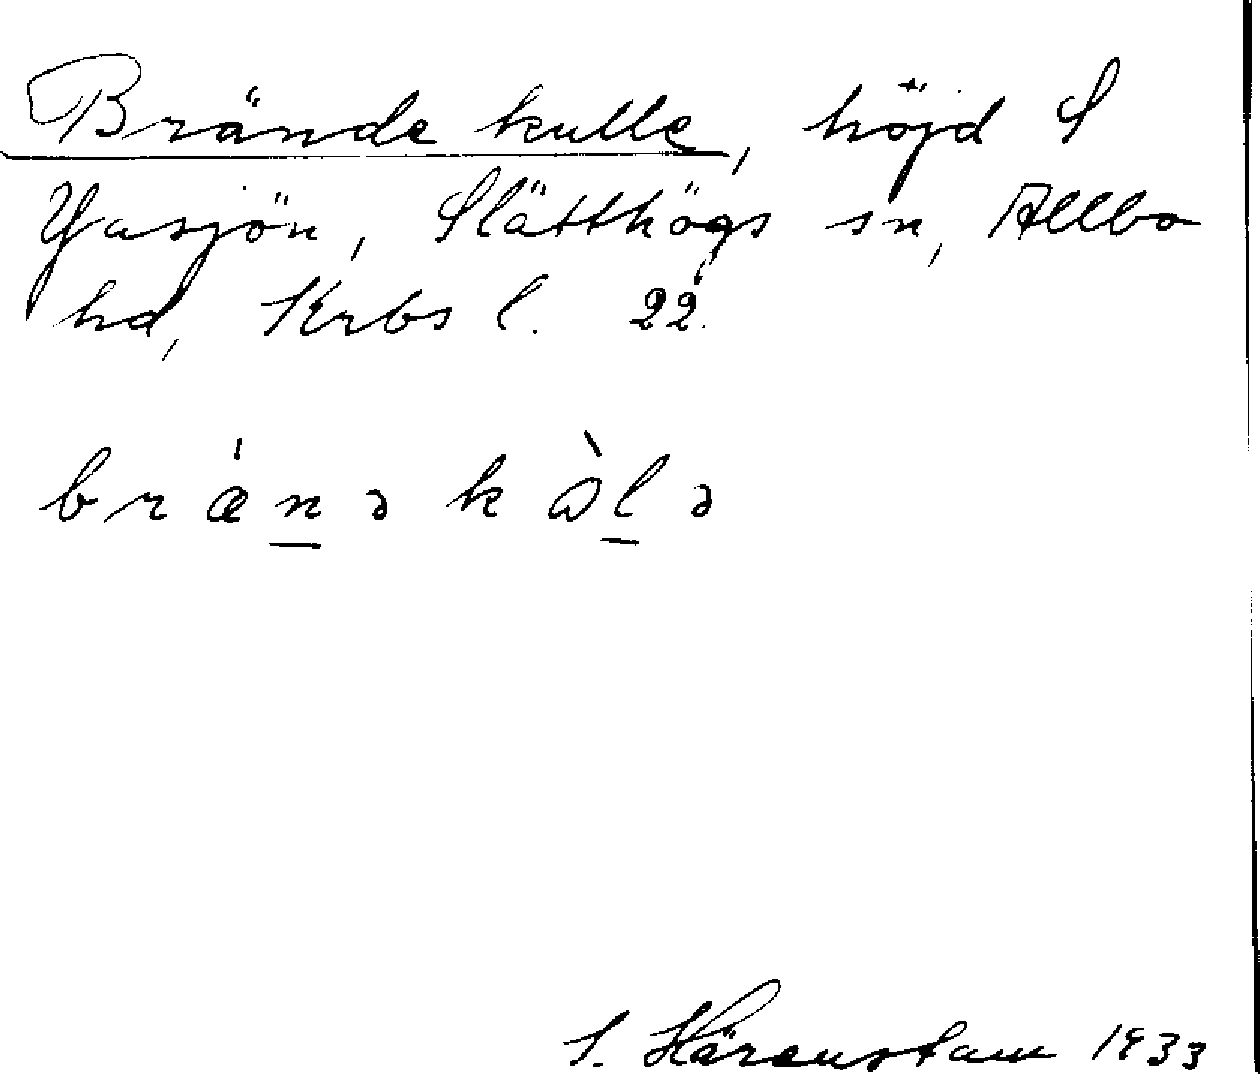 Brände kulle, höjd S
Yasjön, Slätthögs sn, Allbo
hd, Krbs l. 22.
bränə kòlə
S. Härenstam 1933